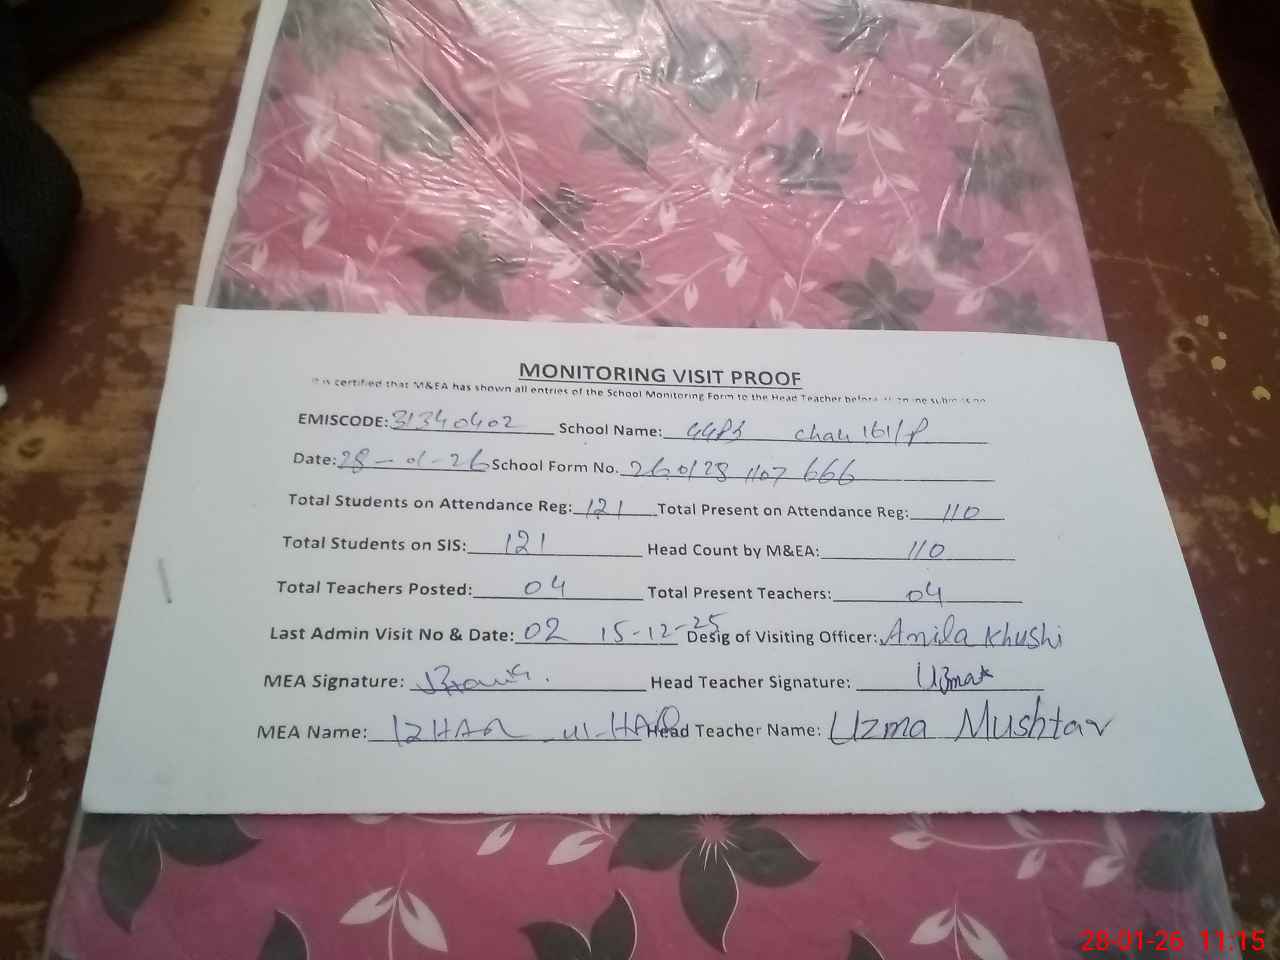 MONITORING VISIT PROOF
It is certified that M&EA has shown all entries of the School Monitoring Form to the Head Teacher before
EMISCODE: 31340402 School Name: GGPS chak 161/P
Date: 28-01-26 School Form No. 260128 1107 666
Total Students on Attendance Reg: 121 Total Present on Attendance Reg: 110
Total Students on SIS: 121 Head Count by M&EA: 110
Total Teachers Posted: 04 Total Present Teachers: 04
Last Admin Visit No & Date: 02 15-12-25 Desig of Visiting Officer: Anila Khushi
MEA Signature: Head Teacher Signature: Uzma
MEA Name: IZHAR ul-HAQ Head Teacher Name: Uzma Mushtaq
28-01-26 11:15